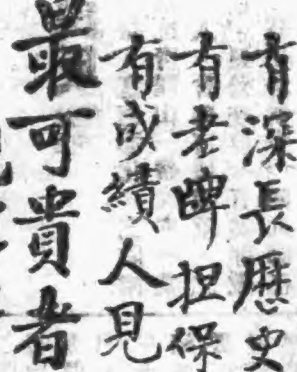 有深長歷史
有老牌担保
有成績人見
最可貴者